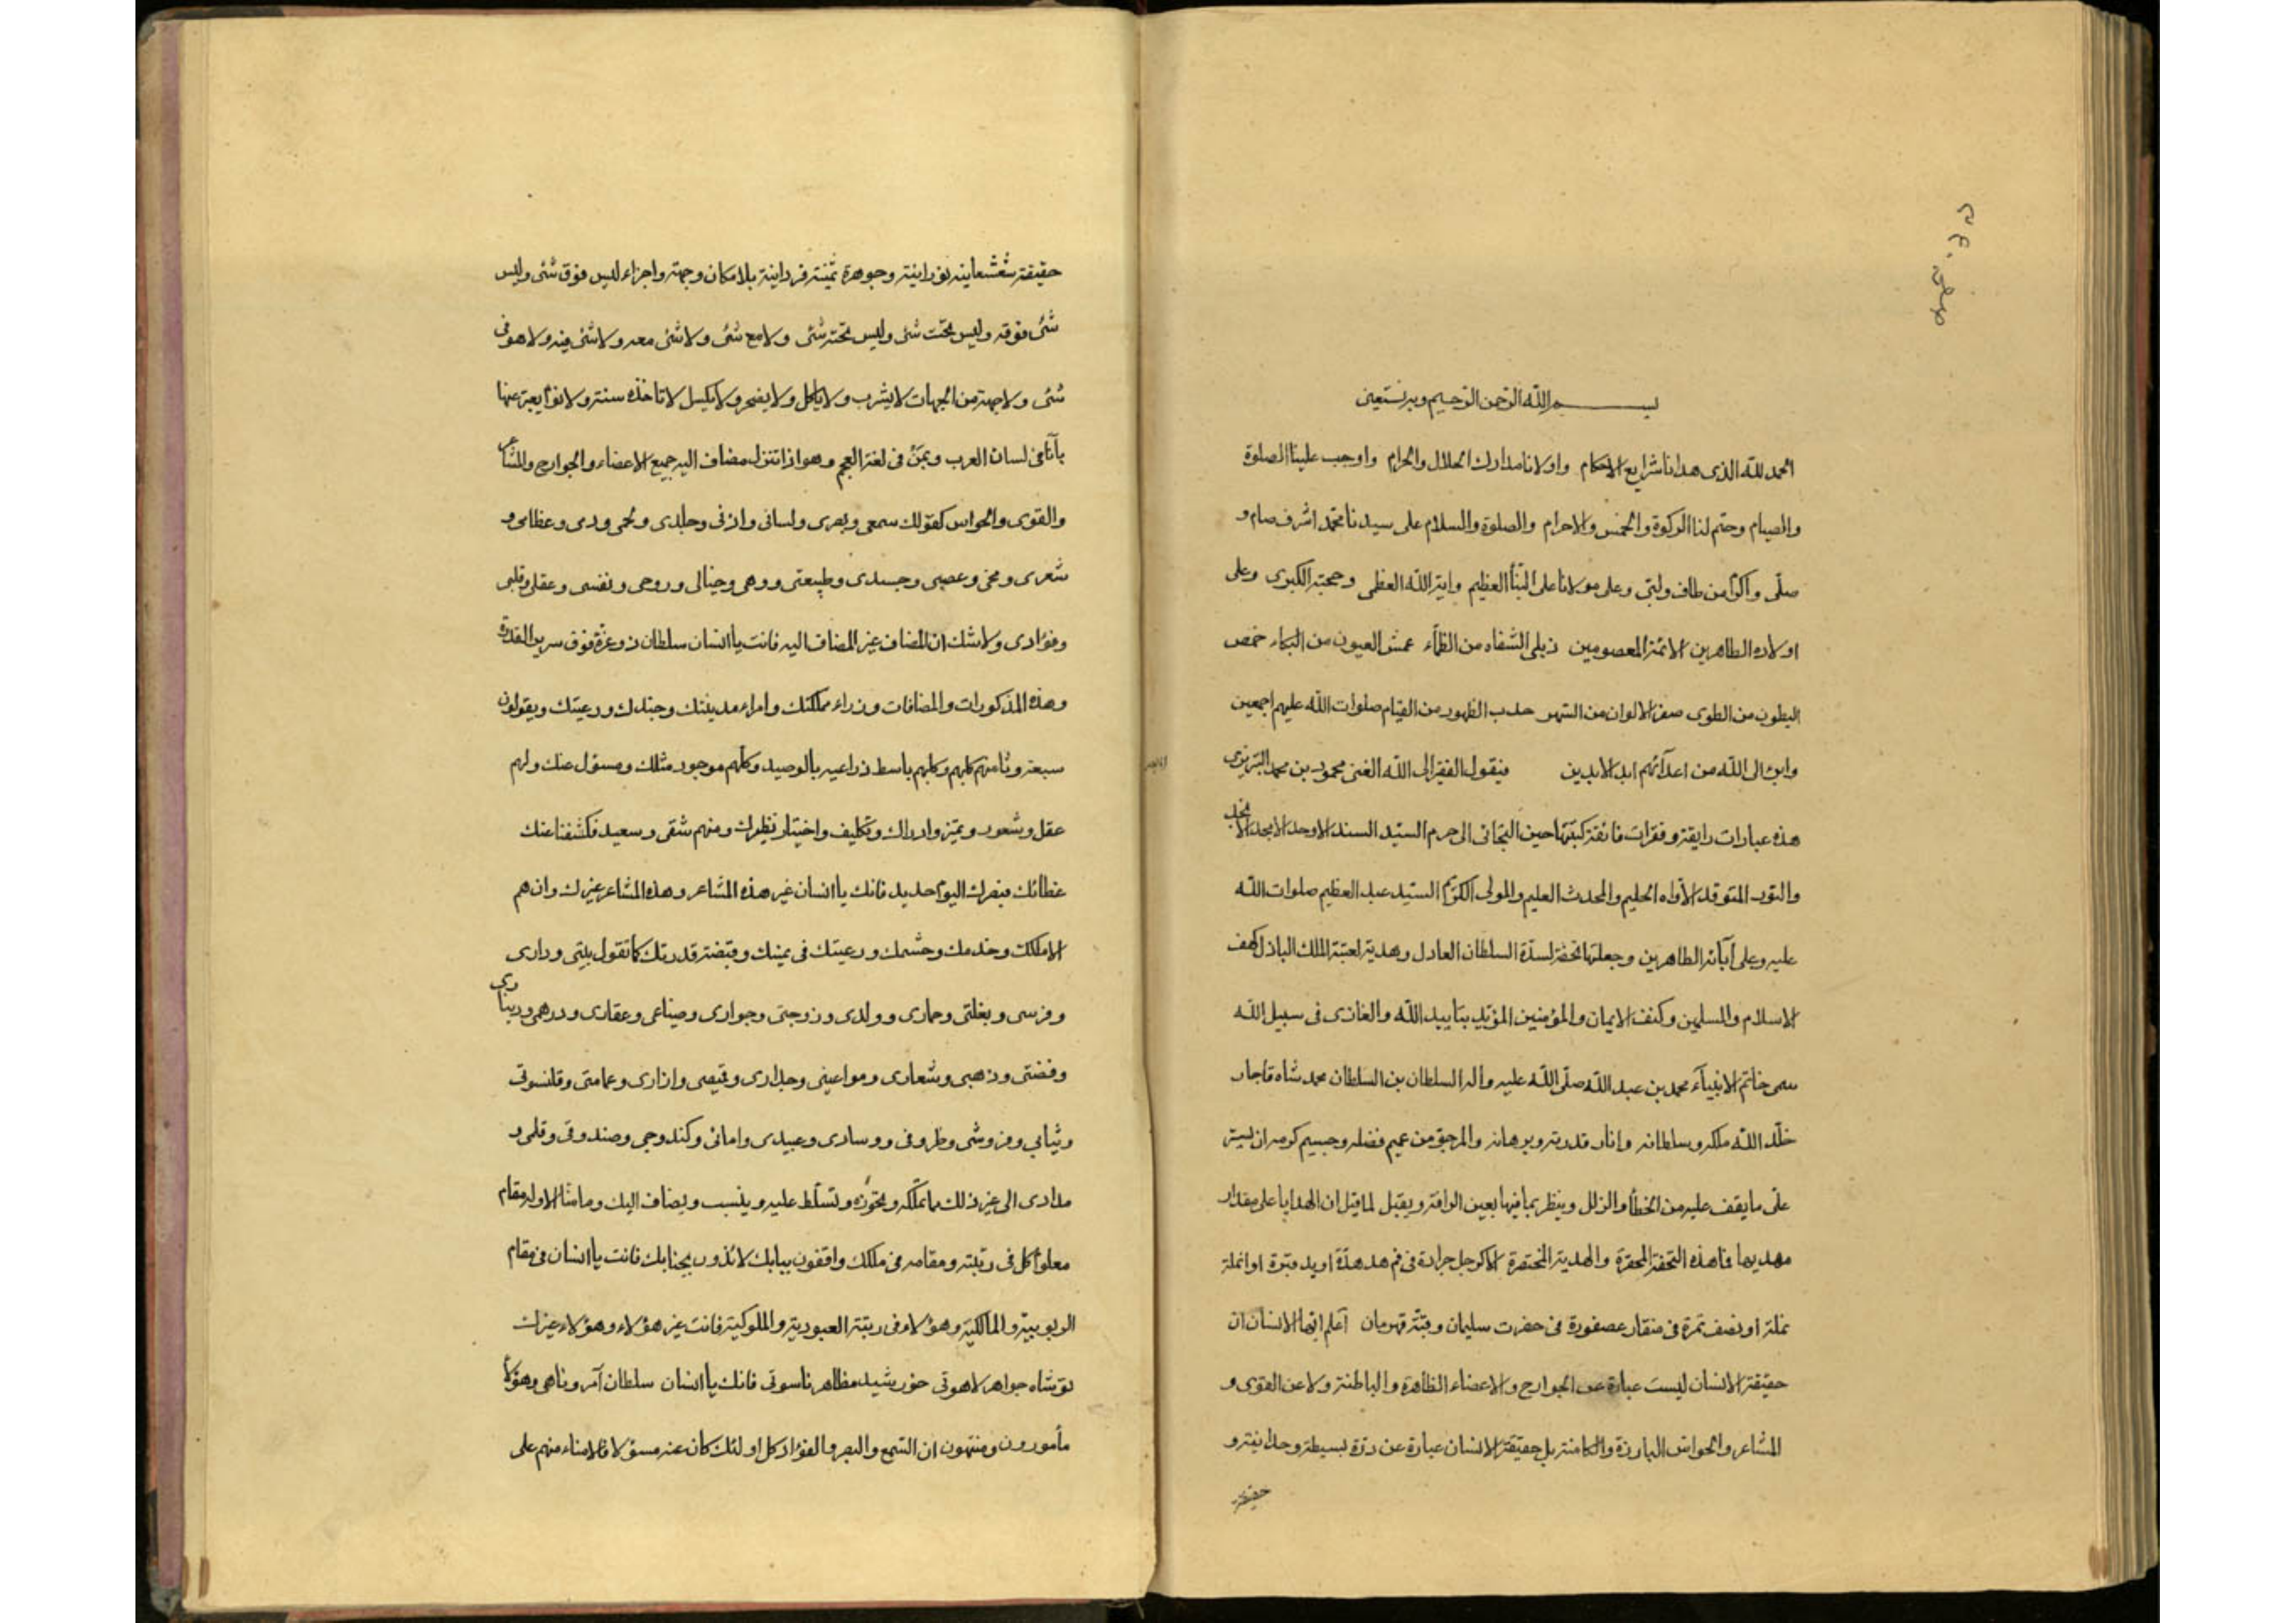 بسم الله الرحمن الرحيم وبه نستعين
الحمد لله الذى هدانا شرايع الاحكام واولانا مدارك الحلال والحرام واوجب علينا الصلوة
والصيام وحتم لنا الزكوة والخمس والاحرام والصلوة والسلام على سيدنا محمد اشرف صام و
صلى وأكرم من طاف ولبى وعلى مولانا على النبأ العظيم واية الله العظمى وحجته الكبرى وعلى
اولاده الطاهرين الائمة المعصومين ذبلى الشفاه من الظمآء عمش العيون من البكاء خمص
البطون من الطوى صفر الالوان من السهر حدب الظهور من القيام صلوات الله عليهم اجمعين
وابرء الى الله من اعدآئهم ابد الابدين فيقول الفقير الى الله الغنى محمود بن محمد التبريزى
هذه عبارات رايقة وفقرات فائقة كتبتها حين التجائى الى حرم السيد السند الاوحد الامجد الانجد
والنور المتوقد الأواه الحليم والمحدث العليم والمولى الكريم السيد عبد العظيم صلوات الله
عليه وعلى آبائه الطاهرين وجعلتها تحفة لسدة السلطان العادل وهدية لعتبة الملك الباذل كهف
الاسلام والمسلمين وكنف الايمان والمؤمنين المؤيد بتاييد الله والغازى فى سبيل الله
سمى خاتم الانبيآء محمد بن عبد الله صلى الله عليه واله السلطان بن السلطان محمد شاه قاجار
خلد الله ملكه وسلطانه وانار قدرته وبرهانه والمرجو من عميم فضله وجسيم كرمه ان يستر
على ما يقف عليه من الخطأ والزلل وينظر بما فيها بعين الرافة ويقبل لما قيل ان الهدايا على مقدار
مهديها فما هذه التحفة المحقرة والهدية المختصرة الا كرجل جرادة فى فم هدهدة او يد قبرة او انملة
نملة او نصف تمرة فى منقار عصفورة فى حضرت سليمان وقبة قهرمان اعلم ايها الانسان ان
حقيقة الانسان ليست عبارة عن الجوارح والاعضاء الظاهرة والباطنة ولا عن القوى و
المشاعر والحواس البارزة والكامنة بل حقيقة الانسان عبارة عن درة بسيطة وحدانية و
حقيقة
حقيقة شعشعاينه نورانية وجوهرة ثمينة فردانية بلا مكان وجهة واجزاء ليس فوق شئ وليس
شئ فوقه وليس تحت شئ وليس تحته شئ ولا مع شئ ولا شئ معه ولا شئ فيه ولا هو فى
شئ ولا جهة من الجهات لا يشرب ولا ياكل ولا يضجر ولا يكسل لا تاخذه سنة ولا نوم يعبر عنها
بأنا فى لسان العرب وبمن فى لغة العجم وهو اذا تنزل مضاف اليه جميع الاعضاء والجوارح والمشاعر
والقوى والحواس كقولك سمعى وبصرى ولسانى واذنى وجلدى ولحمى ودمى وعظامى و
شعرى ومخى وعصبى وجسدى وطبيعتى ووهمى وخيالى وروحى ونفسى وعقلى وقلبى
وفؤادى ولا شك ان المضاف غير المضاف اليه فانت يا انسان سلطان ذو عزة فوق سرير القدرة
وهذه المذكورات والمضافات وزراء مملكتك وامراء مدينتك وجندك ورعيتك ويقولون
سبعة وثامنهم كلبهم وكلبهم باسط ذراعيه بالوصيد وكلهم موجود مثلك ومسؤل عنك ولهم
عقل وشعور وتميز وادراك وتكليف واختيار نظيرك ومنهم شقى وسعيد فكشفنا عنك
غطائك فبصرك اليوم حديد فانك يا انسان غير هذه المشاعر وهذه المشاعر غيرك وان هم
الا ملكك وخدمك وحشمك ورعيتك فى يمينك وقبضة قدرتك كما تقول بيتى ودارى
وفرسى وبغلتى وحمارى وولدى وزوجتى وجوارى وضياعى وعقارى ودرهمى ودينارى
وفضتى وذهبى وشعارى ومواعينى وجدارى وقميصى وازارى وعمامتى وقلنسوتى
وثيابى وفروشى وظروفى ووسادى وعبيدى وامائى وكندوجى وصندوقى وقلمى و
مدادى الى غير ذلك مما تملكه وتحوزه وتسلط عليه وينسب ويضاف اليك وما منا الا وله مقام
معلوم كل فى رتبته ومقامه فى ملكك واقفون ببابك لائذون بجنابك فانت يا انسان فى مقام
الربوبية والمالكية وهؤلاء فى رتبة العبودية والملوكية فانت غير هؤلاء وهؤلاء غيرك
تو شاه جواهر لاهوتى خورشيد مظاهر ناسوتى فانك يا انسان سلطان آمر وناهى وهؤلاء
مأمورون ومنتهون ان السمع والبصر والفؤاد كل اولئك كان عنه مسؤلا فالامناء منهم على